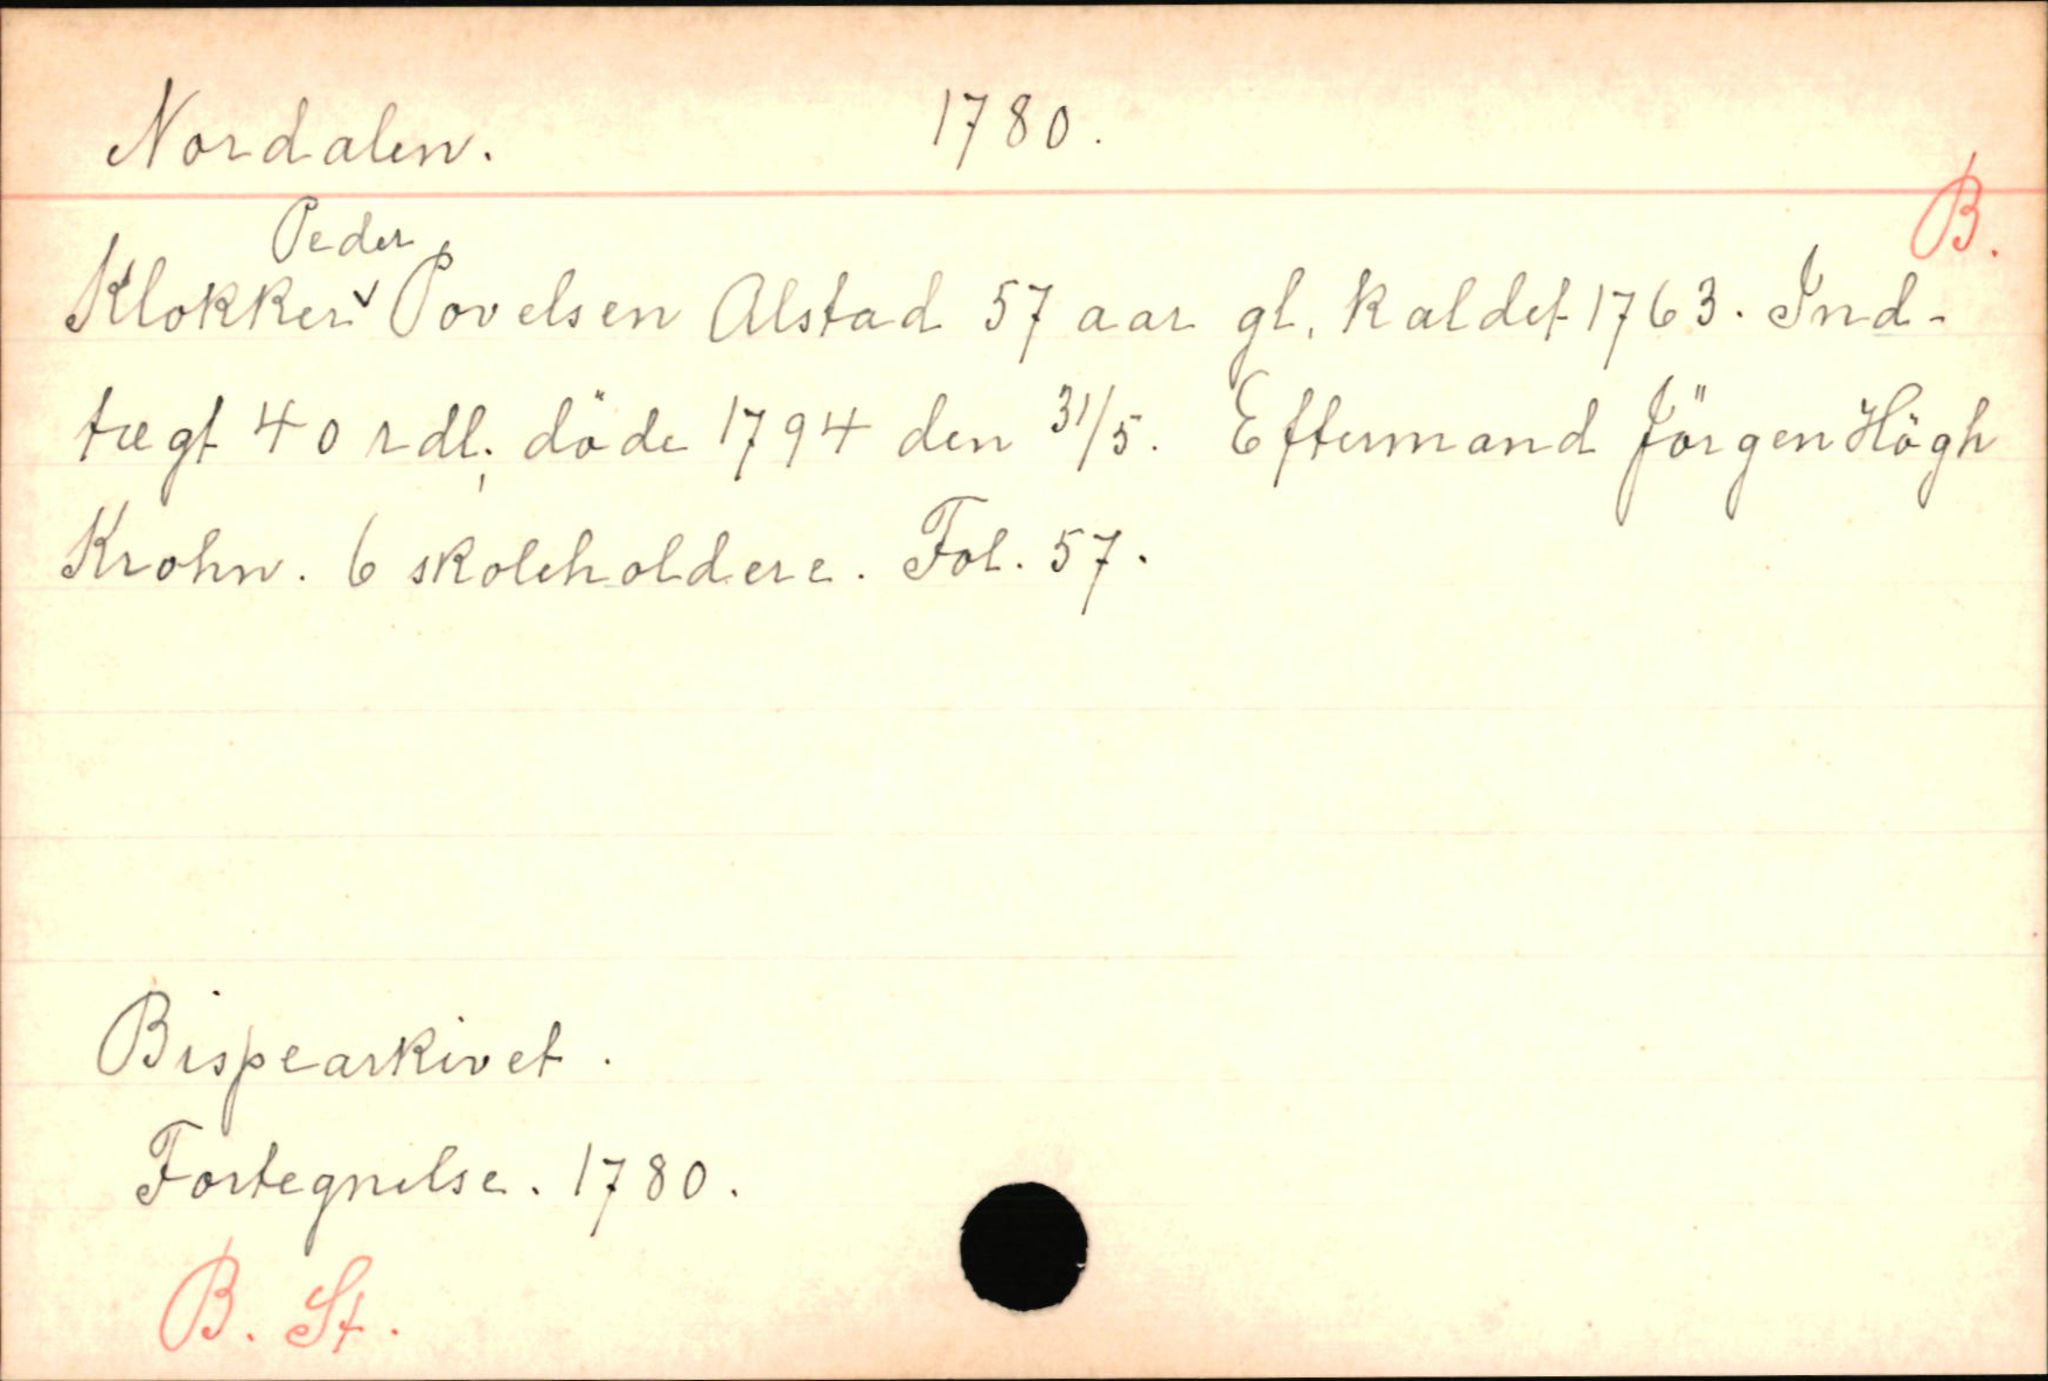 Nordalen. 1780.
B.
Peder
Klokker ˅ Povelsen Alstad 57 aar gl. kaldet 1763. Ind-
tægt 40 rdl; döde 1794 den 31/5. Eftermand Jörgen Högh
Krohn. 6 skoleholdere. Fol. 57.
Bispearkivet.
Fortegnelse. 1780.
B. St.